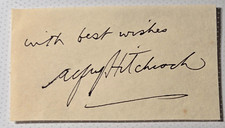 with best wishes
Alfred Hitchcock